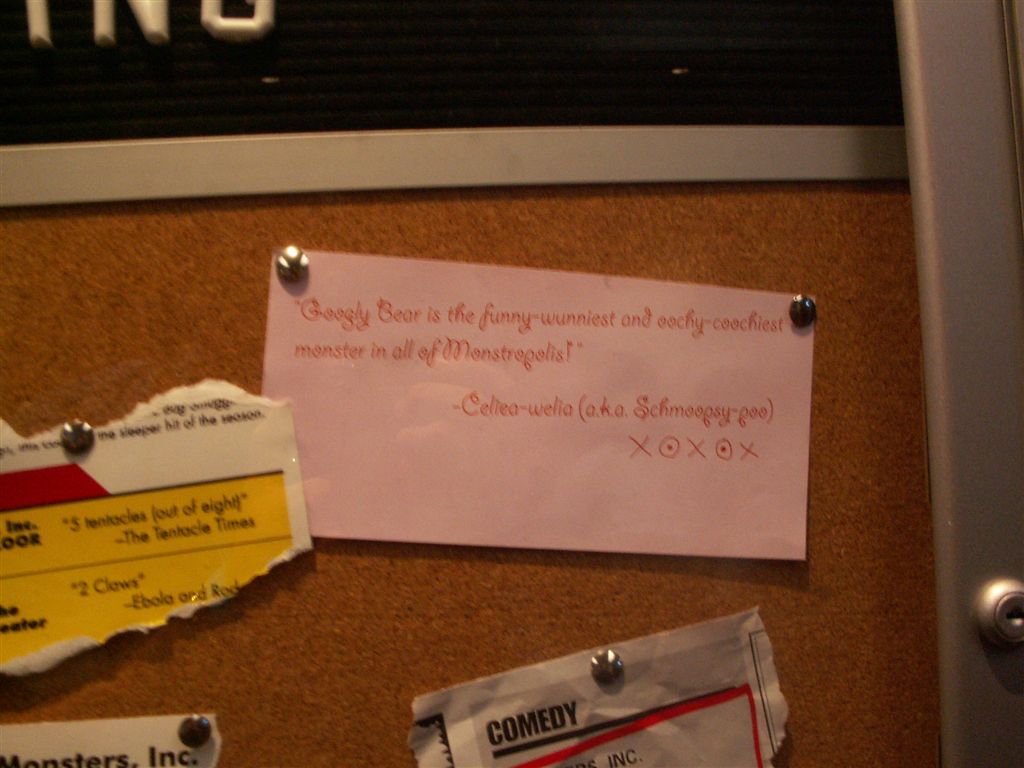 ING
"Googly Bear is the funny-wunniest and oochy-coochiest
monster in all of Monstropolis!"
-Celiea-welia (a.k.a. Schmoopsy-poo)
X⊙X⊙X
the sleeper hit of the season.
Inc.
"5 tentacles (out of eight)"
OOR
-The Tentacle Times
"2 Claws"
-Ebola and
eater
Monsters, Inc.
COMEDY
RS, INC.